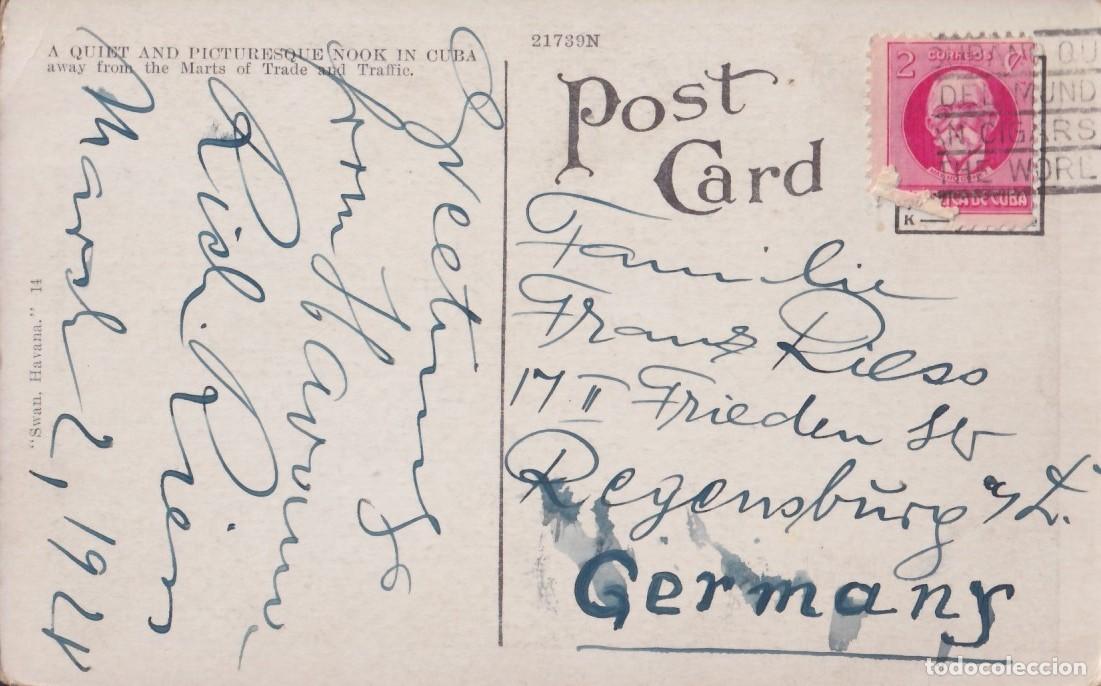 A QUIET AND PICTURESQUE NOOK IN CUBA
away from the Marts of Trade and Traffic.
21739N
Post
Card
2 CORREOS ¢
ICA DE CUBA
ANO QU
DEL MUND
N CIGARS
THE WORL
K
Greetings
from Havana
Rich. Riess
March 2, 192
"Swan, Havana." 14
Familie
Franz Riess
17 II Frieden Str
Regensburg a/
Germany
todocoleccion